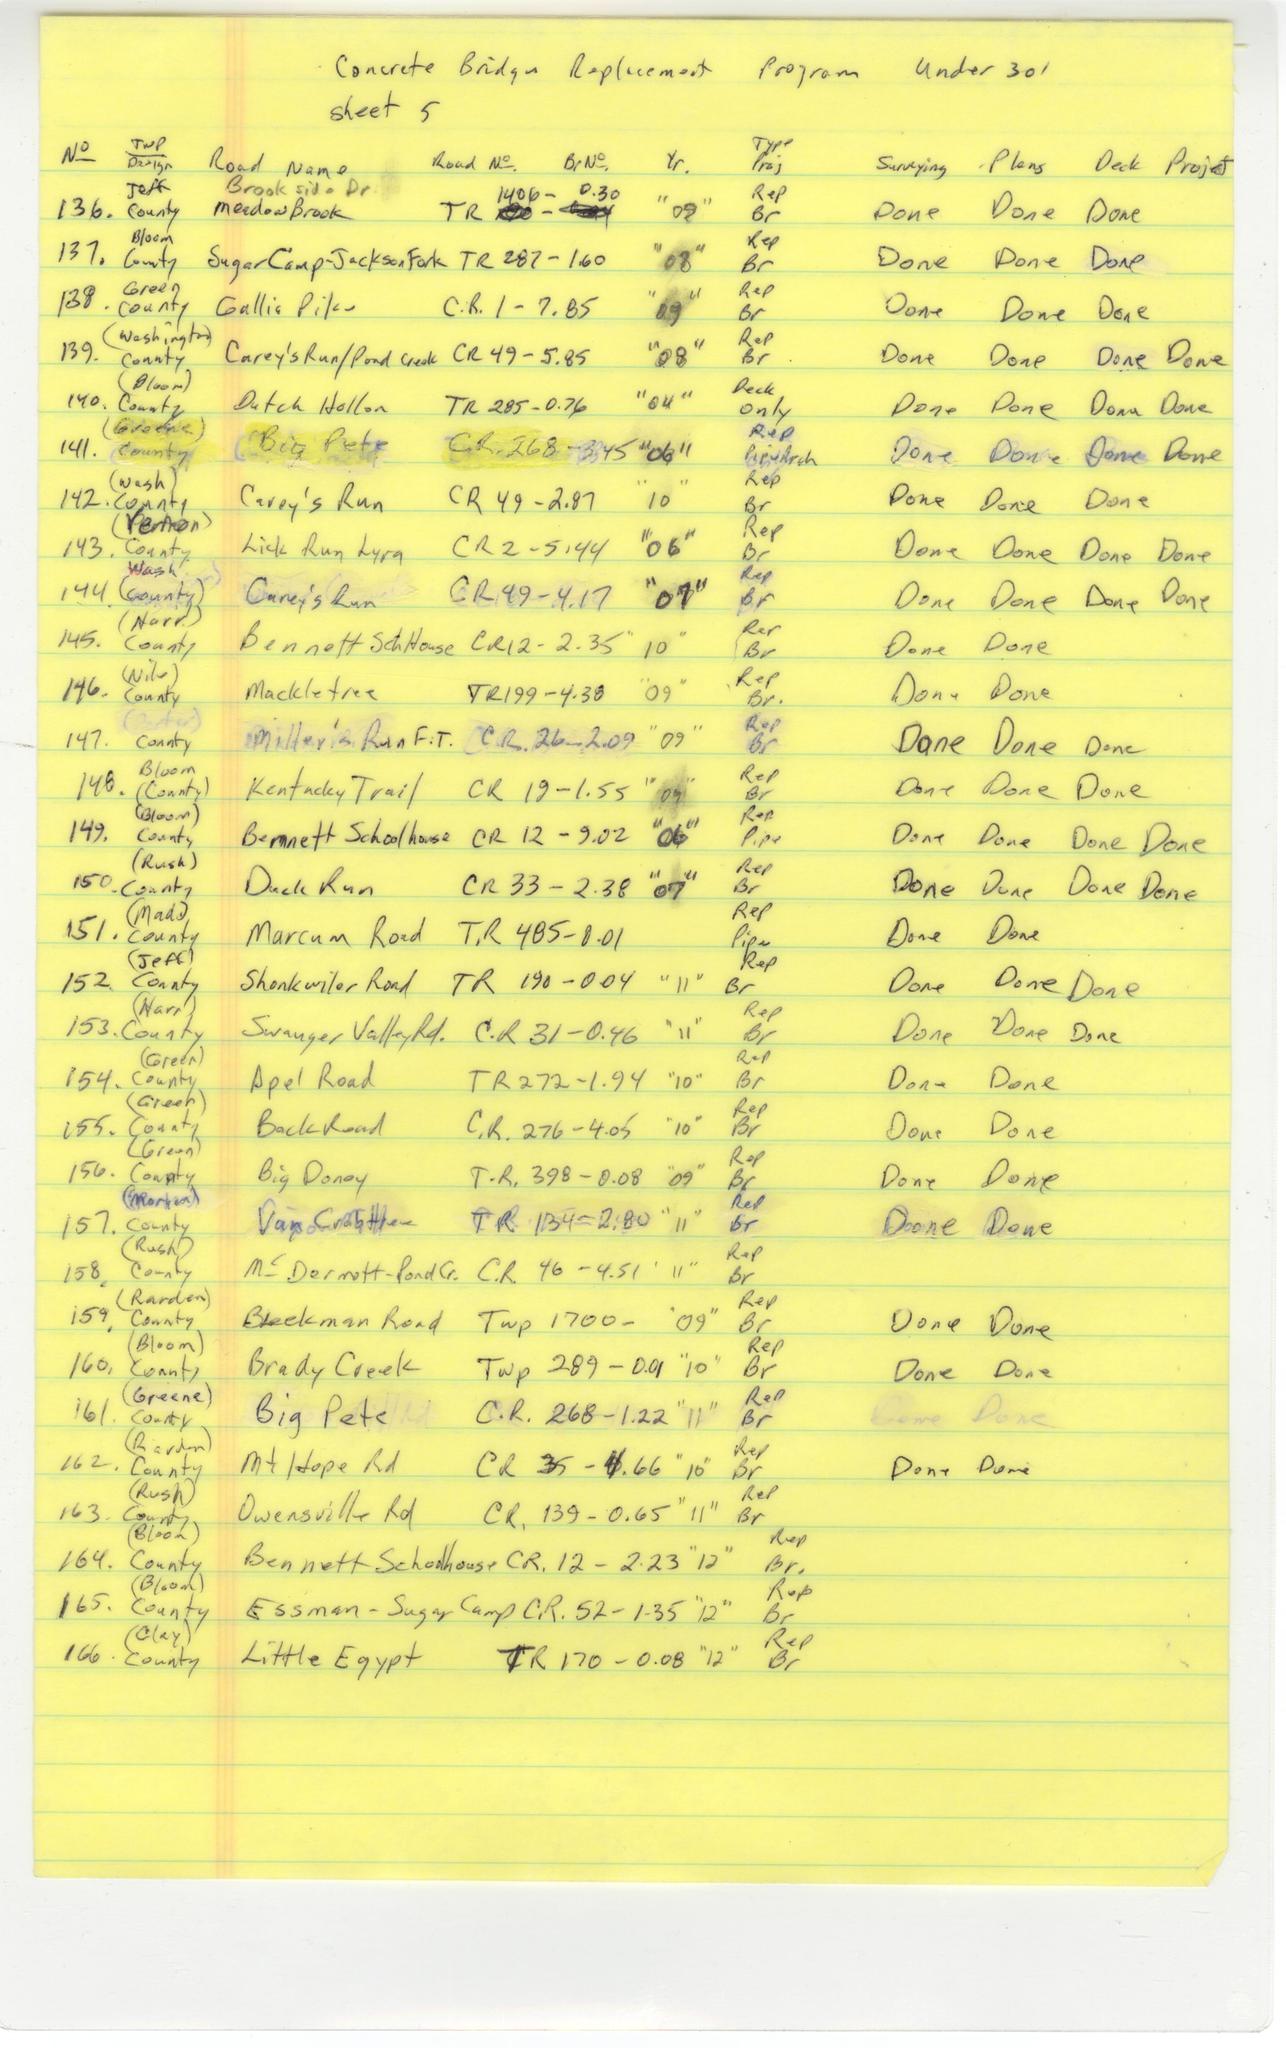 Concrete Bridge Replacement Program Under 30'
sheet 5
No Twp Design Road Name Road No. Br No. Yr. Type Proj Surveying Plans Deck Project
136. Jeff County Brookside Dr. MeadowBrook TR 1406 - 0.30 "09" Rep Br Done Done Done
137. Bloom County SugarCamp-Jackson Fork TR 287-1.60 "08" Rep Br Done Done Done
138. Green County Gallia Pike C.R. 1 - 7.85 "09" Rep Br Done Done Done
139. (Washington) County Carey's Run/Pond Creek CR 49-5.85 "08" Rep Br. Done Done Done Done
140. (Bloom) County Dutch Hollon TR 285-0.76 "04" Deck only Done Done Done Done
141. (Greene) County Big Pete CR. 268-3.45 "06" Rep Pipe Arch Done Done Done Done
142. (Wash) County Carey's Run CR 49-2.87 "10" Rep Br Done Done Done
143. (Vernon) County Lick Run Lyra CR 2-5.44 "06" Rep Br Done Done Done Done
144. Wash (County) Carey's Run CR 49-4.17 "07" Rep Br Done Done Done Done
145. (Harr.) County Bennett SchHouse CR12-2.35 "10" Rep Br Done Done
146. (Nile) County Mackletree TR199-4.38 "09" Rep Br. Done Done
147. (Porter) County Miller's Run F.T. C.R. 26-2.09 "09" Rep Br Done Done Done
148. Bloom (County) Kentucky Trail CR 19-1.55 "09" Rep Br Done Done Done
149. (Bloom) County Bennett Schoolhouse CR 12-9.02 "06" Rep Pipe Done Done Done Done
150. (Rush) County Duck Run CR 33-2.38 "07" Rep Br Done Done Done Done
151. (Mad) County Marcum Road T.R 485-0.01 Rep Pipe Done Done
152. (Jeff) County Shonkwiler Road TR 190-0.04 "11" Rep Br Done Done Done
153. (Harr) County Swauger Valley Rd. C.R 31-0.46 "11" Rep Br Done Done Done
154. (Green) County Apel Road TR 272-1.94 "10" Rep Br Done Done
155. (Green) County Back Road C.R. 276-4.05 "10" Rep Br Done Done
156. (Green) County Big Doney T.R. 398-0.08 "09" Rep Br Done Done
157. (Morgan) County TR 134-2.80 "11" Rep Br Done Done
158. (Rush) County Mc Dermott-Pond Cr. C.R. 46-4.51 "11" Rep Br
159. (Rarden) County Bleekman Road Twp 1700- "09" Rep Br Done Done
160. (Bloom) County Brady Creek Twp 289-0.01 "10" Rep Br Done Done
161. (Greene) County Big Pete C.R. 268-1.22 "11" Rep Br Done Done
162. (Rarden) County Mt Hope Rd CR 35-4.66 "10" Rep Br Done Done
163. (Rush) County Owensville Rd CR. 139-0.65 "11" Rep Br
164. (Bloom) County Bennett Schoolhouse CR. 12-2.23 "12" Rep Br.
165. (Bloom) County Essman-Sugar Camp C.R. 52-1.35 "12" Rep Br
166. (Clay) County Little Egypt TR 170-0.08 "12" Rep Br